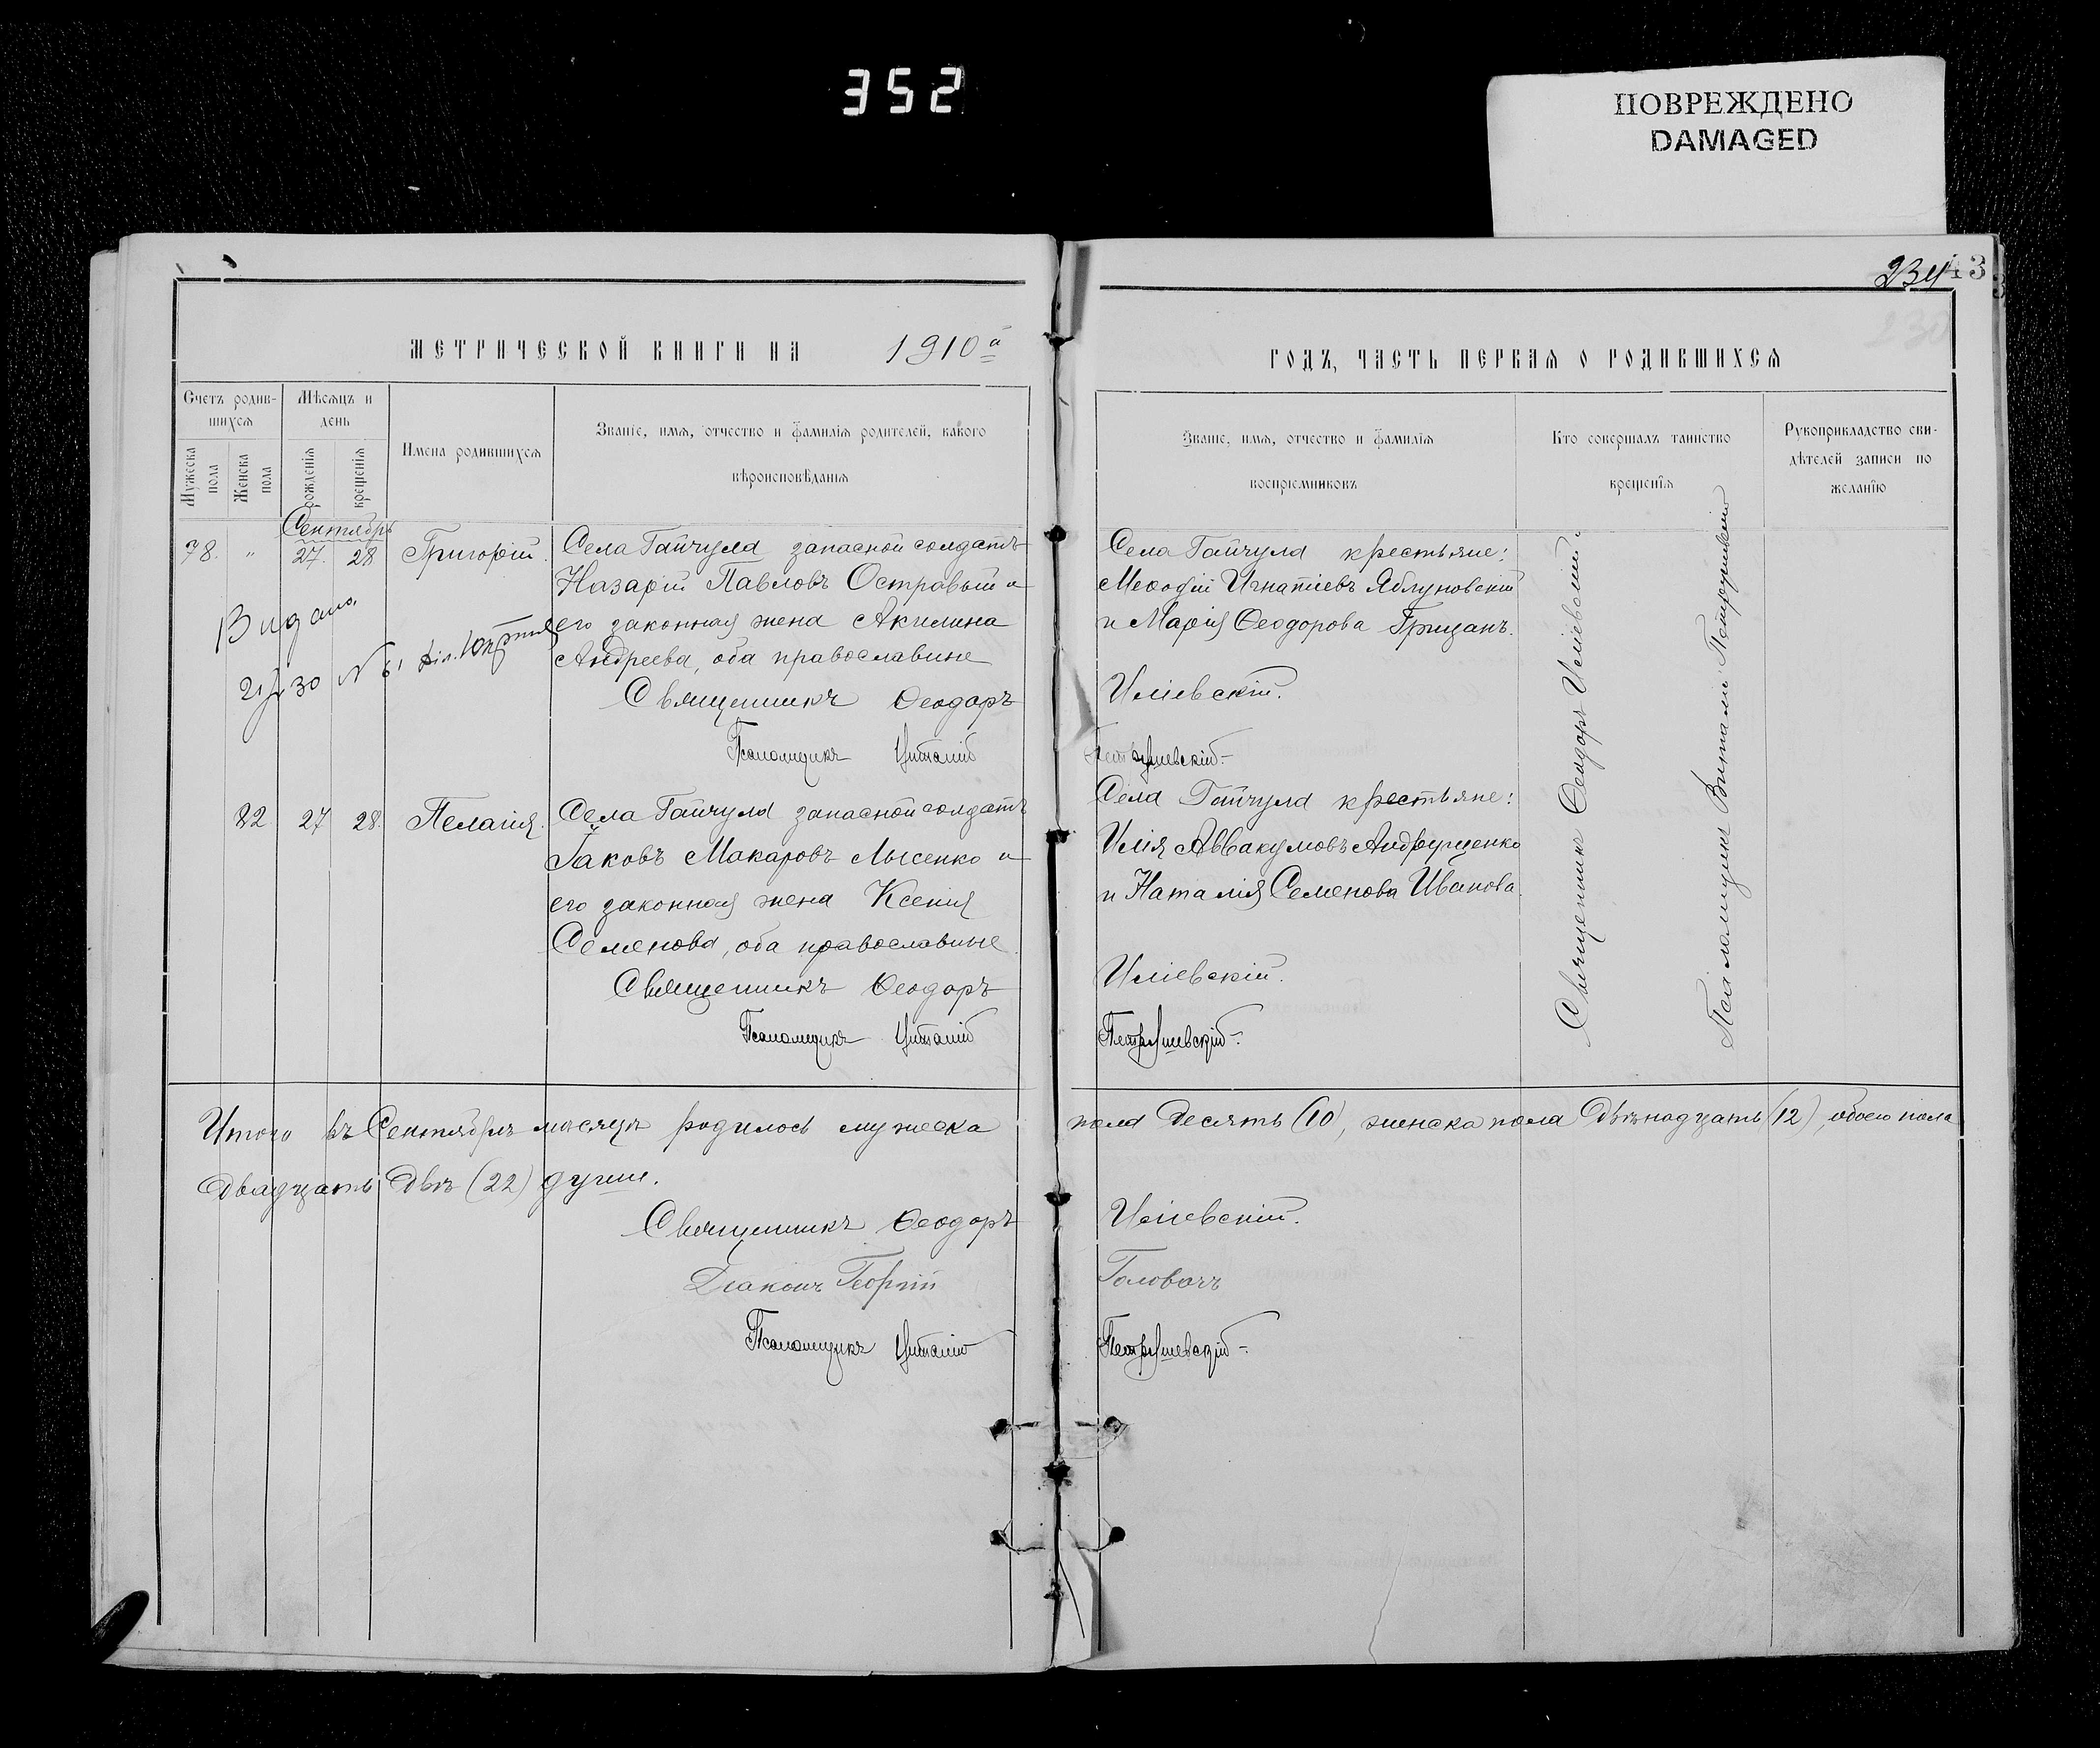 352
ПОВРЕЖДЕНО
DAMAGED
234
3
МЕТРИЧЕСКОЙ КНИГИ НА 1910й
ГОДЪ, ЧАСТЬ ПЕРВАЯ О РОДИВШИХСЯ
Счетъ родив-
шихся
Мужеска пола
Женска пола
Мѣсяцъ и
день
рожденія
крещенія
Имена родившихся
Званіе, имя, отчество и фамилія родителей, какого
вѣроисповѣданія
Званіе, имя, отчество и фамилія
воспріемниковъ
Кто совершалъ таинство
крещенія
Рукоприкладство сви-
дѣтелей записи по
желанію
Сентябрь
78. " 27. 28 Григорій. Села Гайчула запасной солдатъ
Назарій Павловъ Остравый и
его законная жена Акилина
Андреева, оба православные
Священникъ Ѳеодоръ
Псаломщикъ Виталій
Видано
21/X 30 N 61
Села Гайчула крестьяне:
Меѳодій Игнатіевъ Яблуновскій
и Марія Ѳеодорова Грицанъ.
Иліевскій.
Петрушевскій
22 27 28. Пелагія. Села Гайчула запасной солдатъ
Іаковъ Макаровъ Лысенко и
его законная жена Ксенія
Семенова, оба православные
Священникъ Ѳеодоръ
Псаломщикъ Виталій
Села Гайчула крестьяне:
Илія Аввакумовъ Андрущенко
и Наталія Семенова Иванова.
Иліевскій.
Петрушевскій
Священникъ Ѳеодоръ Иліевскій.
Псаломщикъ Виталій Петрушевскій
Итого въ Сентябрѣ мѣсяцѣ родилось мужеска пола десять (10), женска пола двѣнадцать (12), обоего пола
двадцать двѣ (22) души.
Священникъ Ѳеодоръ Иліевскій.
Діаконъ Георгій Головачъ
Псаломщикъ Виталій Петрушевскій